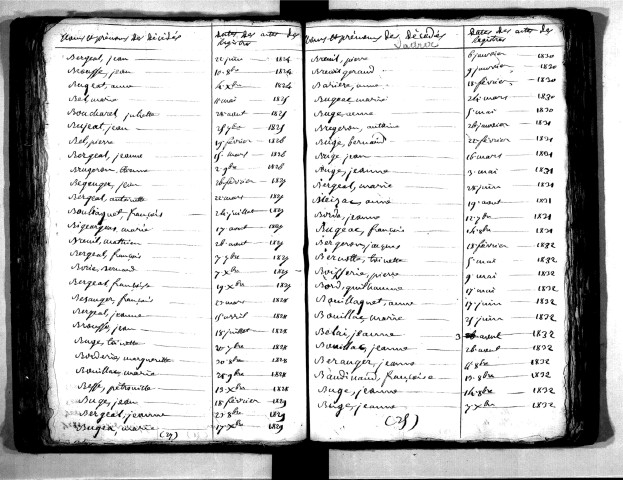 Noms et prénoms des Décédés Dates des actes des registres
Bergeal, jean 22 juin 1824
Brouffe, jean 10 8bre 1824
Bugeat, anne 14 Xbre 1824
Bel, marie 11 mai 1825
Boucharel, juliette 28 aout 1825
Bujeat, jean 25 7bre 1825
Bel, pierre 19 février 1826
Bergeal, jeanne 15 mars 1826
Brugeron, 2 9bre 1826
Begougne, jean 26 février 1827
Bergeal, antoinette 22 mars 1827
Boullaguet, françois 24 juillet 1827
Bigeargeas, marie 17 aout 1827
Breuil, mathieu 28 aout 1827
Bergeal, françois 7 9bre 1827
Borie, bernard 7 Xbre 1827
Bergeal, françoise 19 Xbre 1827
Besanger, françois 23 mars 1828
Bergeal, jeanne 15 avril 1828
Brouffe, jean 18 juillet 1828
Buge, toinette 20 7bre 1828
Borderie, marguerite 30 8bre 1828
Bouillac, marie 28 9bre 1828
Beffe, pétronille 13 Xbre 1828
Buge, jean 18 février 1829
Bergeal, jeanne 23 8bre 1829
Bugea, marie 17 Xbre 1829
(27)
Noms et prénoms des Décédés Dates des actes des registres
Breuil, pierre 6 janvier 1830
Breuil, geraud 9 janvier 1830
Bariere, anne 18 février 1830
Bugeac, marie 24 mars 1830
Buge, anne 5 mai 1830
Bregeron, antoine 26 janvier 1831
Buge, bernard 22 février 1831
Buge, jean 16 mars 1831
Buge, jeanne 3 mai 1831
Bergeal, marie 28 juin 1831
Bleizac, anne 19 aout 1831
Borie, jeanne 12 7bre 1831
Bugeac, françois 14 8bre 1831
Bergeron, jacques 18 février 1832
Bernotte, toinette 5 mai 1832
Boifferie, pierre 9 mai 1832
Bord, guilhaume 17 mai 1832
Bouillaguet, anne 17 juin 1832
Bouillac, marie 25 juin 1832
Bolai, jeanne 3 aout 1832
Bouillac, jeanne 26 aout 1832
Beranger, jeanne 4 8bre 1832
Baudinaud, françoise 13 8bre 1832
Buge, jeanne 14 8bre 1832
Buge, jeanne 7 Xbre 1832